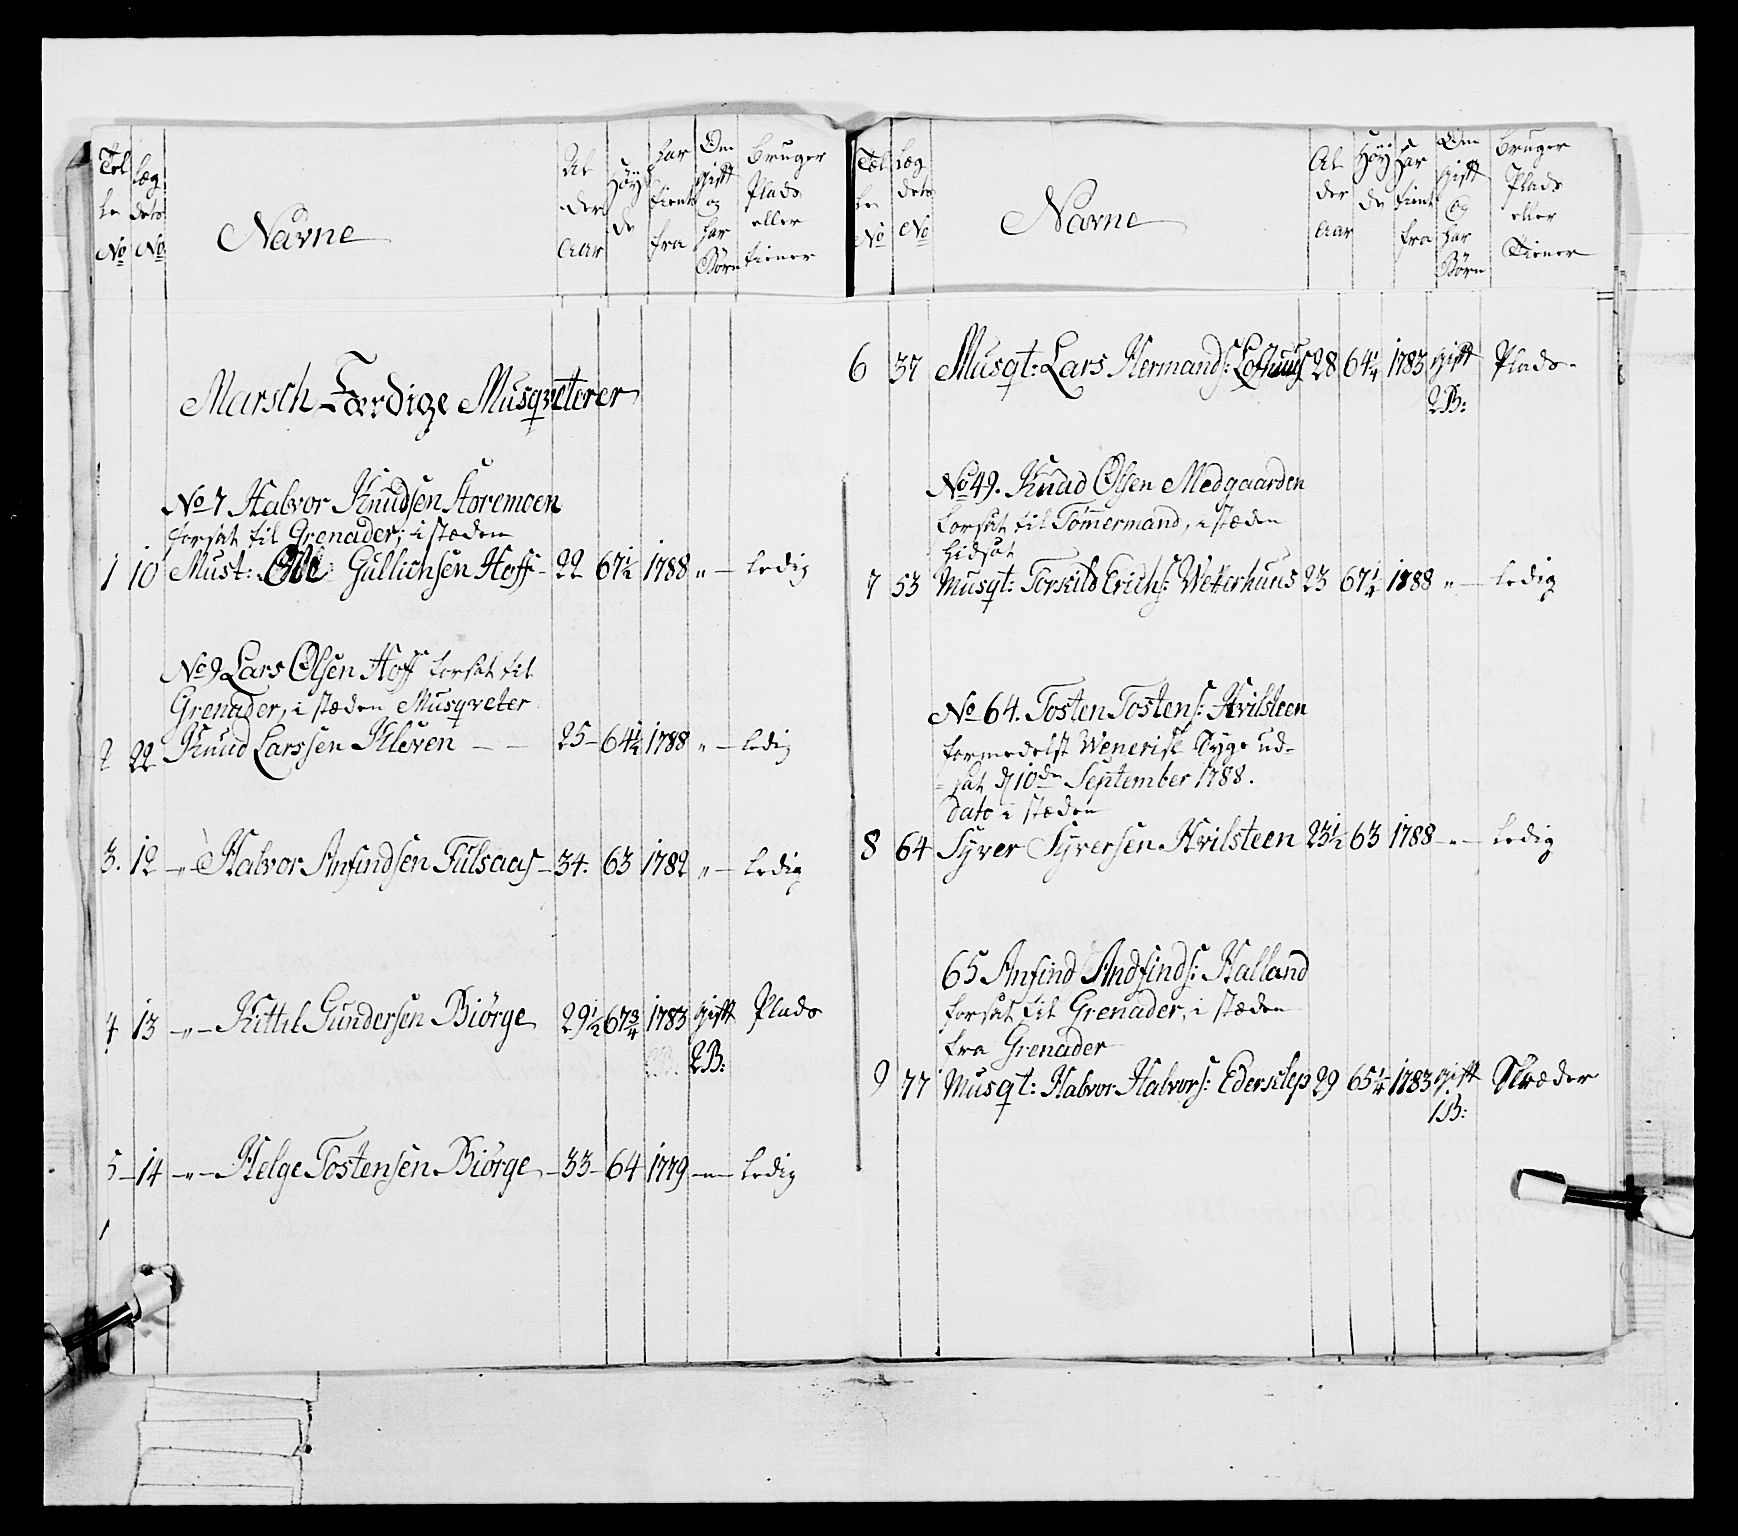 Tol læg Al Høy har Om bruger
le dets Navne der de tient Gift Plads
No No Aar fra og eller
har tiener
Børn
Marsch Færdige Musqveterer
No 7 Halvor Knudsen Storemoen
forsat til Grenader, i stæden
1 10 Must: Ole Gullichsen Hoff - 22 67½ 1788 „ - ledig
No 9 Lars Olsen Hoff forsat til
Grenader, i stæden Musqveter
2 22 Knud Larssen Kleven - - 25 - 64½ 1788 „ - ledig
3. 12 - „ - Halvor Anfindsen Fulsaas - 34. 63 1782 „ - ledig
4 13 - „ - Kittil Gundersen Biørge 29½ 67¾ 1783 Gift Plads
2B:
5 - 14 - „ - Helge Tostensen Biørge - 33 - 64 1779 - „ - ledig
Tol læg Al Høy har Om bruger
le dets Navne der de tient Gift Plads
No No Aar fra og eller
har Tiener
Børn
6 37 Musqt: Lars Hermands: Lofthuus 28 64¼ 1783 Gift Plads -
2B:
No 49. Knud Olsen Medgaarden
forsat til Tømmermand, i stæden
hidsat
7 53 Musqt: Torkild Erichs: Wetterhuus 23 67¼ 1788 „ - ledig
No 64. Tosten Tostens: Hvilsteen
formedelst Wenerisk Syge ud-
- sat d 10de September 1788.
dato i stæden
8 64 Syver Syversen Hvilsteen 23½ 63 1788 - „ - ledig
65 Anfind Andfinds: Halland
forsat til Grenader, i stæden
fra Grenader
9 77 Musqt: Halvor Halvors: Ederklep 29 65¼ 1783 Gift Skræder
1B: